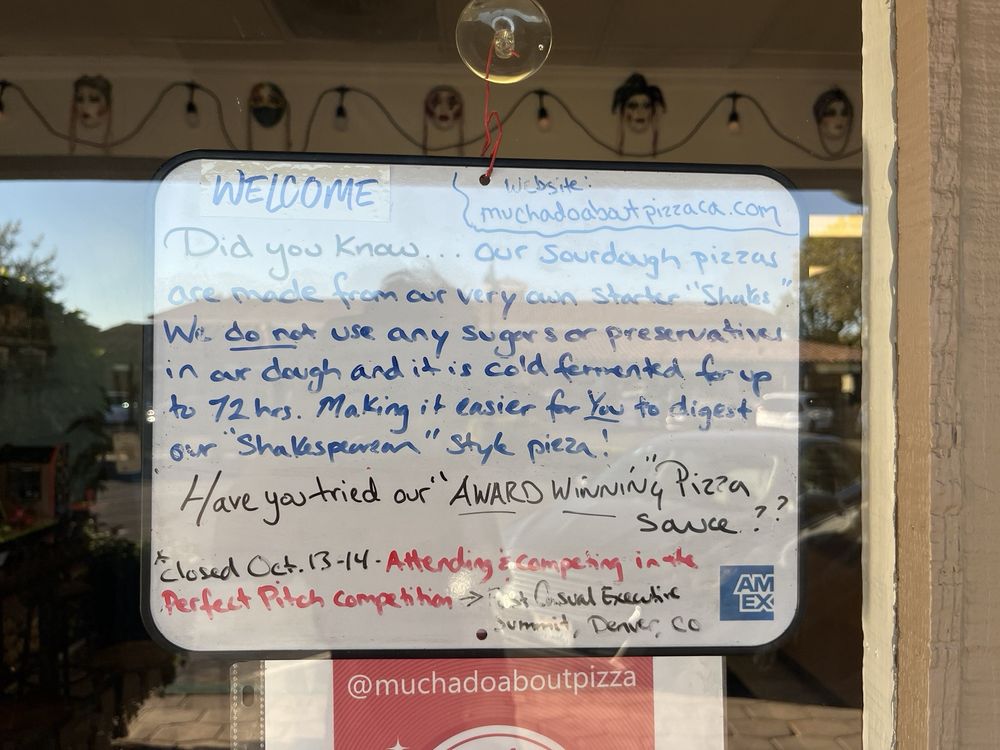 WELCOME
Website:
muchadoaboutpizzaca.com
Did you Know... our Sourdough pizzas
are made from our very own starter "Shakes"
We do not use any sugars or preservatives
in our dough and it is cold fermented for up
to 72 hrs. Making it easier for You to digest
our "Shakespearean" Style pizza!
Have you tried our "AWARD WINNING" Pizza
sauce??
*Closed Oct. 13-14 - Attending & competing in the
Perfect Pitch competition → Fast Casual Executive
Summit, Denver, CO
AM
EX
@muchadoaboutpizza